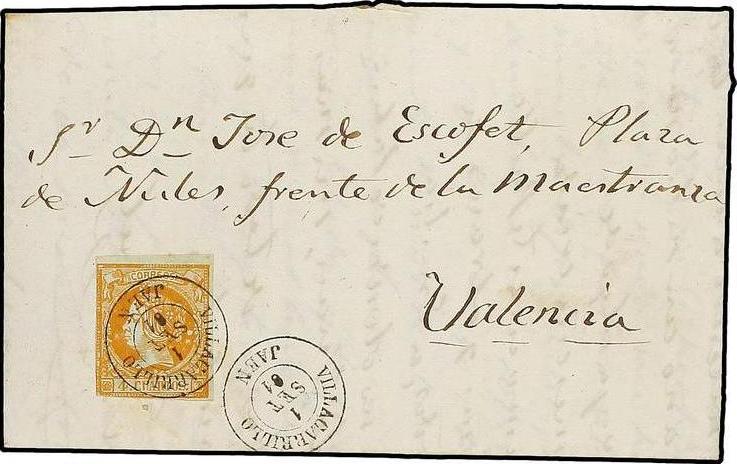 Sr Dn Jose de Escofet, Plaza
de Nules, frente de la Maestranza
Valencia
CORREOS
VILLACARRILLO
JAEN
1
SET
61
VILLACARRILLO
JAEN
1
SET
61